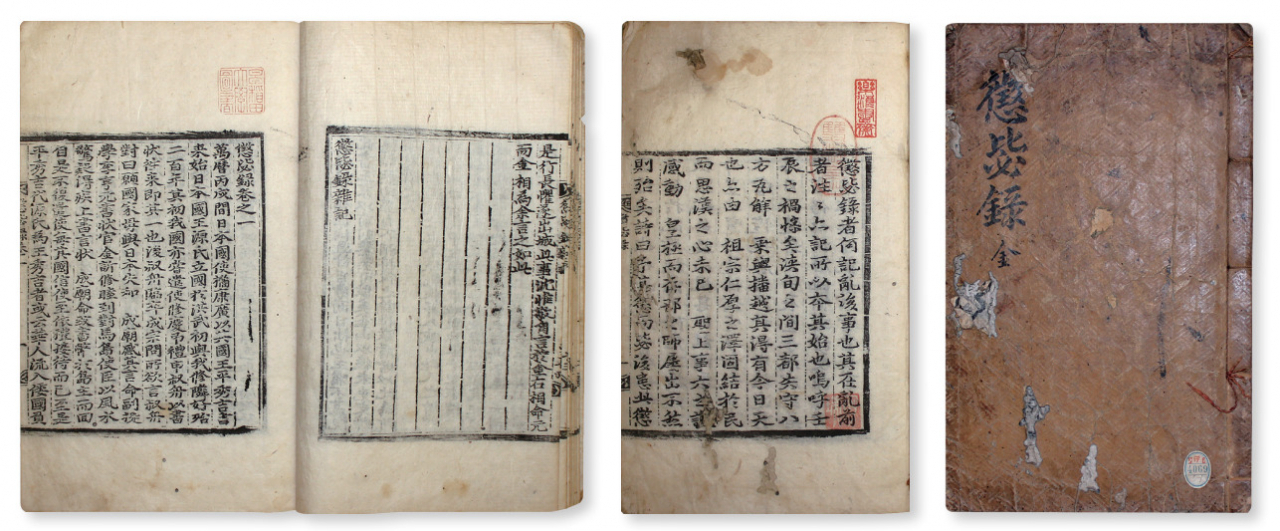 懲毖錄 全
懲毖錄者何記亂後事也其在亂前
者往往亦記所以本其始也嗚呼壬
辰之禍慘矣浹旬之間三都失守八
方瓦解 乘輿播越其得有今日天
也亦由 祖宗仁厚之澤固結於民
而思漢之心未已 聖上事大之誠
感動 皇極而存邢之師屢出不然
則殆矣詩曰予其懲而毖後患此懲
是行長懼遂出城此事沈惟敬自言於金右相命元
而金相為余言之如此
懲毖錄雜記
懲毖錄卷之一
萬曆丙戌間日本國使橘康廣以其國王平秀吉書
來始日本國王源氏立國於洪武初與我修隣好殆
二百年其初我國亦嘗遣使修慶弔禮申叔舟以書
狀往來即其一也後叔舟臨卒成宗問所欲言叔舟
對曰願國家毋與日本失和 成廟感其言命副提
學李亨元書狀官金訢修睦到對馬島使臣以風水
驚疑得疾上書言狀 成廟命致書幣于島主而回
自是不復遣使每其國信使至依禮接待而已至是
平秀吉代源氏為王秀吉者或云華人流入倭國負